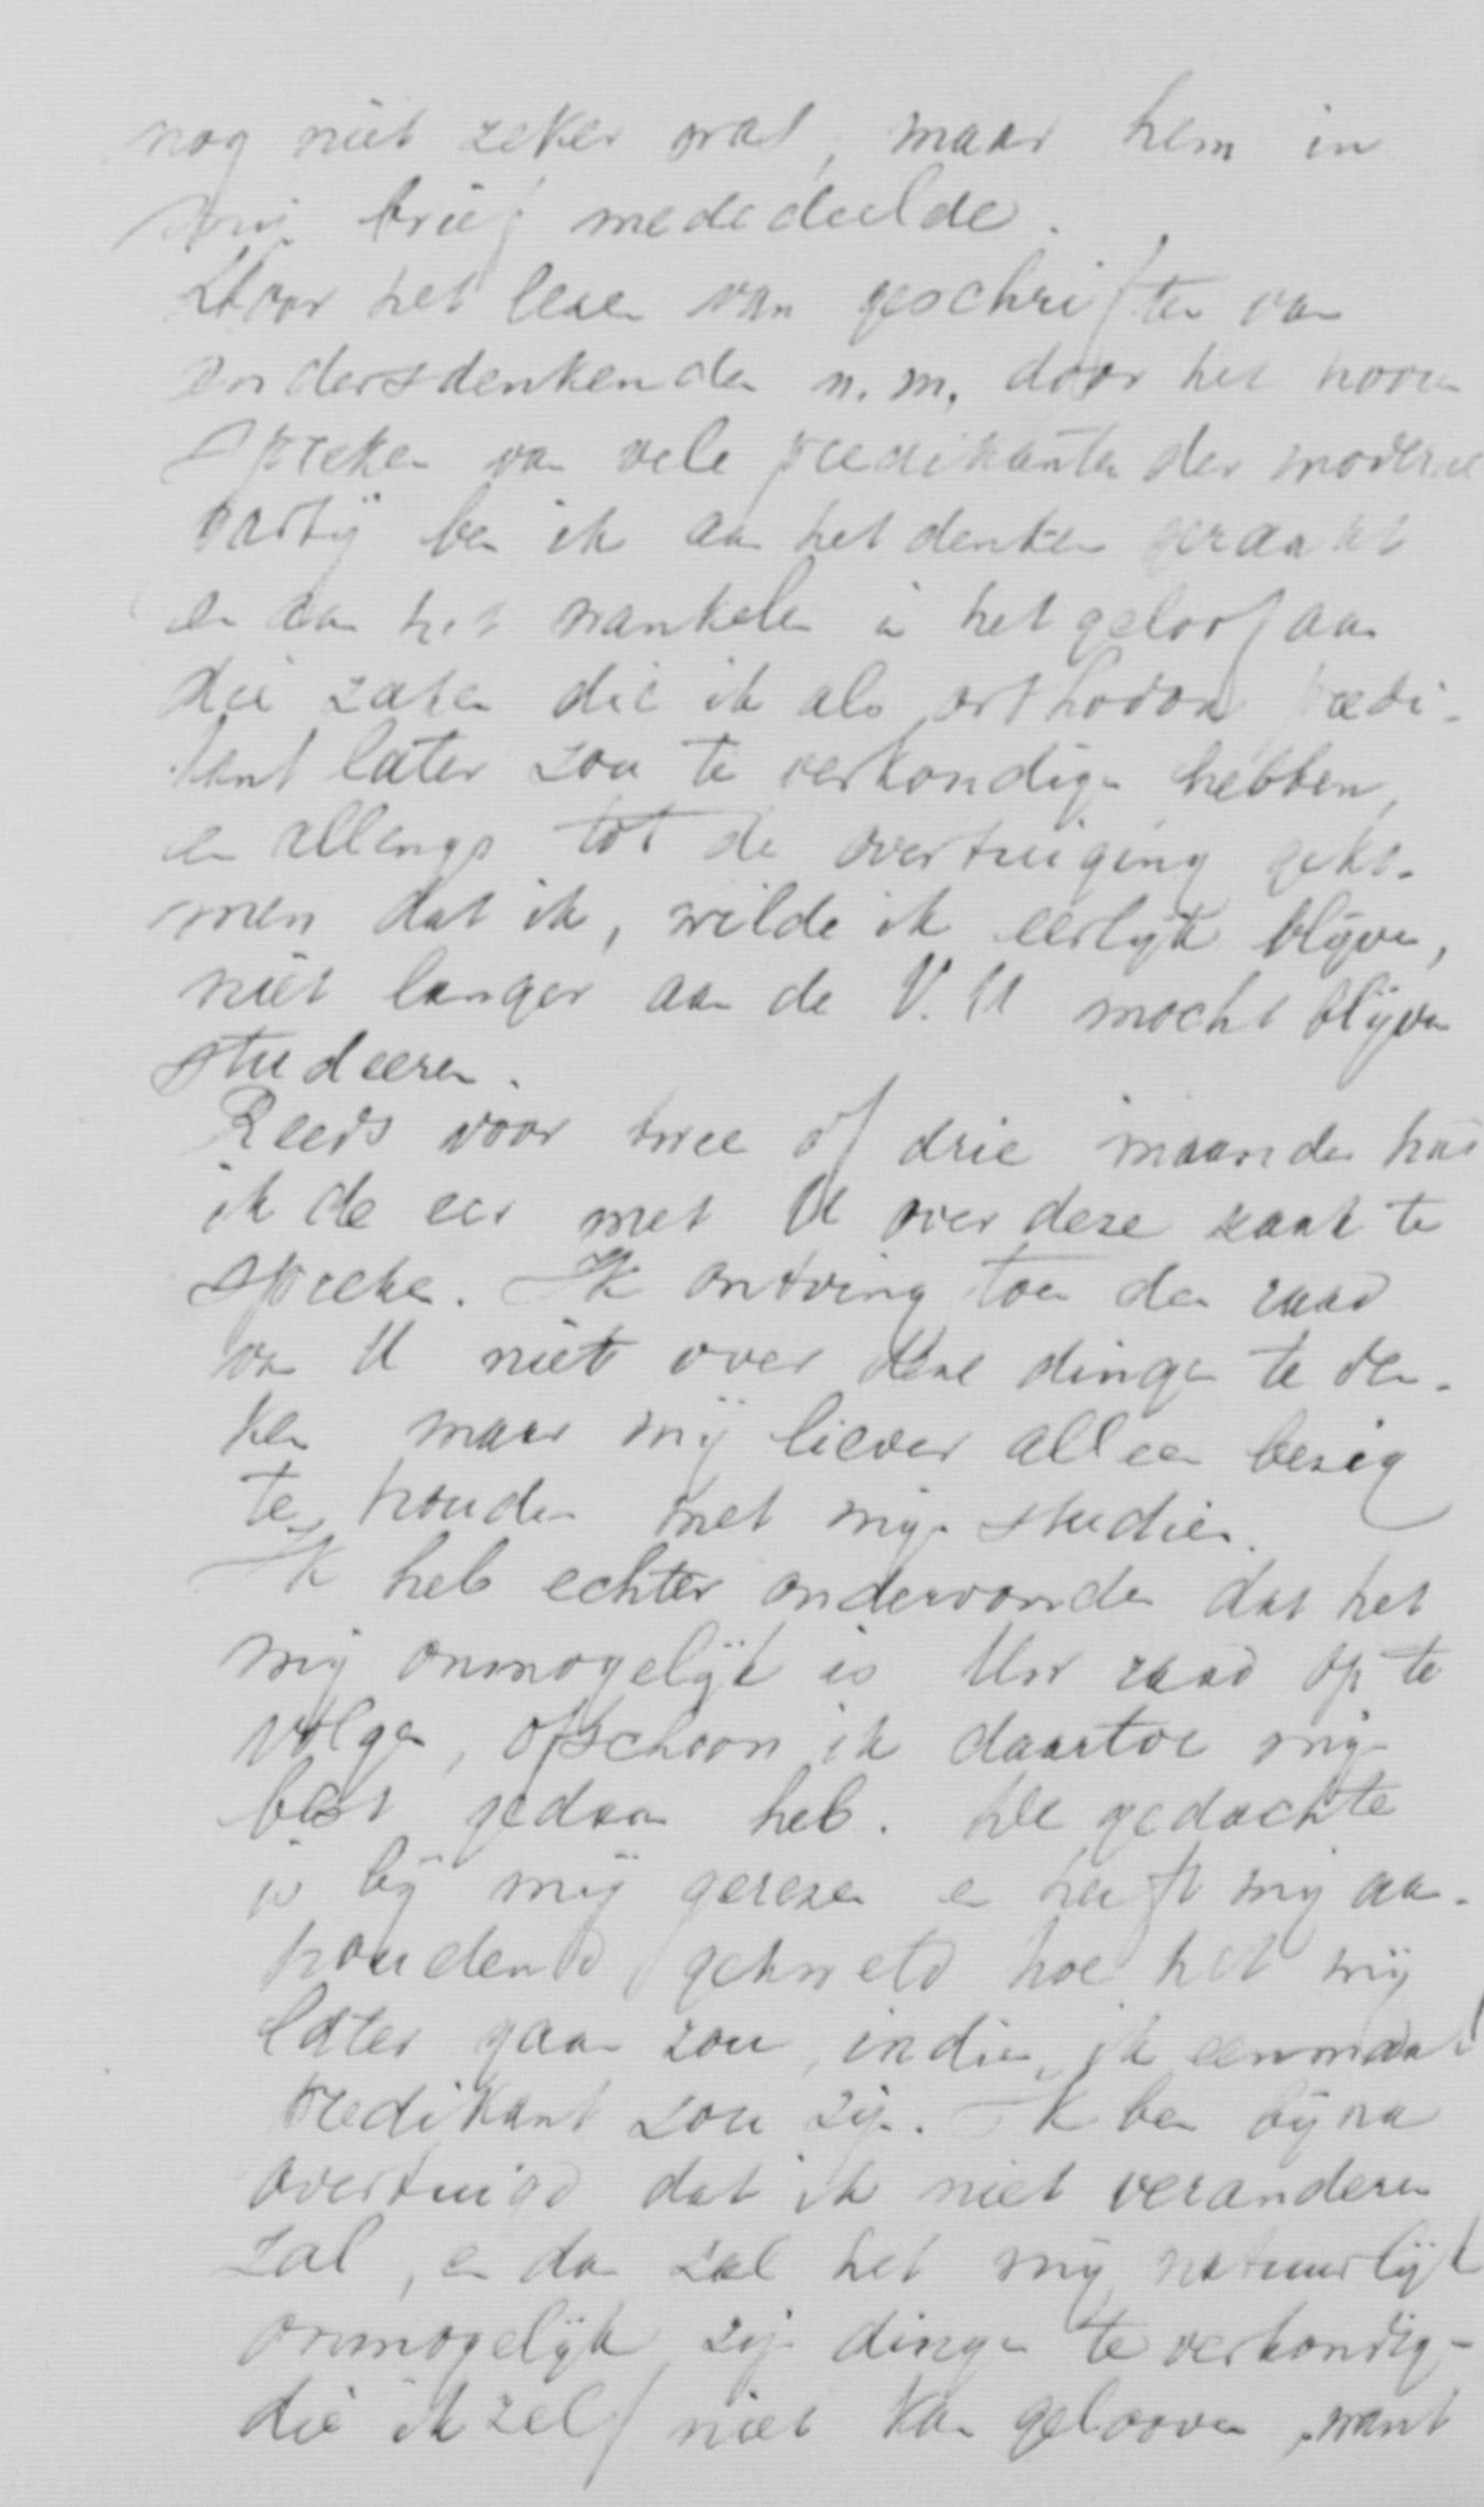 nog niet zeker was, maar hem in
mijn brief mededeelde.
Door het lezen van geschriften van
andersdenkenden n.m. door het hooren
spreken van vele predikanten der moderne
partij ben ik aan het denken geraakt
en aan het wankelen in het geloof aan
die zaken die ik als orthodox predi-
kant later zou te verkondigen hebben,
en allengs tot de overtuiging geko-
men dat ik, wilde ik eerlijk blijven,
niet langer aan de V.U mocht blijven
studeeren.
Reeds voor twee of drie maanden had
ik de eer met U over deze zaak te
spreken. Ik ontving toen den raad
van U niet over deze dingen te den-
ken maar mij liever alleen bezig
te houden met mijn studiën.
Ik heb echter ondervonden dat het
mij onmogelijk is Uw raad op te
volgen, ofschoon ik daartoe mijn
best gedaan heb. De gedachte
is bij mij gerezen en heeft mij aan-
houdend gekweld hoe het mij
later gaan zou, indien ik eenmaal
predikant zou zijn. Ik ben bijna
overtuigd dat ik niet veranderen
zal, en dan zal het mij natuurlijk
onmogelijk zijn dingen te verkondigen
die ik zelf niet kan gelooven, want